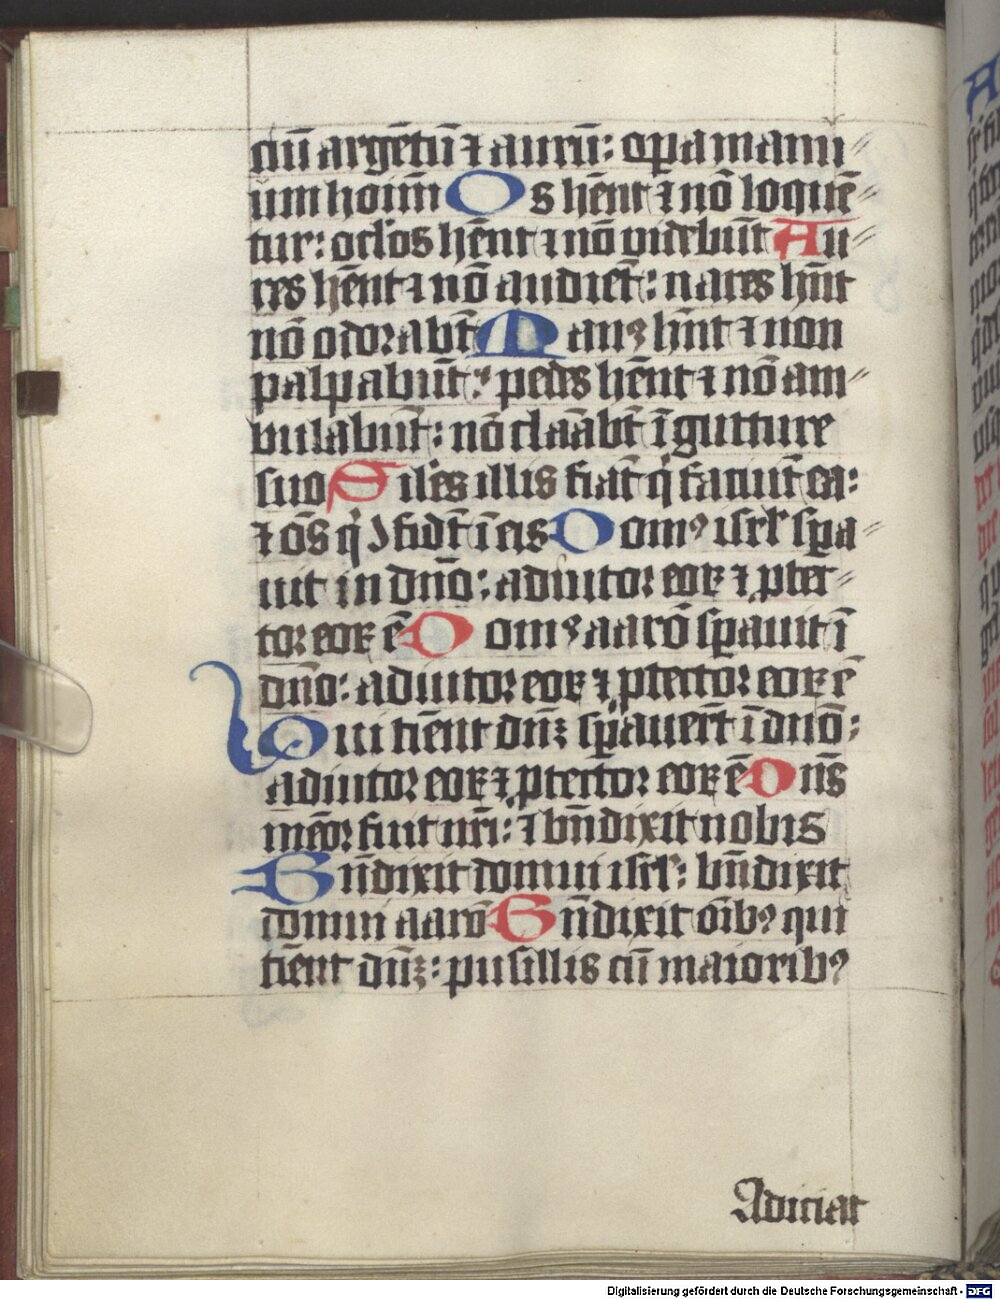 ciū argētū ⁊ aurū: opa manu⸗
um hoīm Os hēnt ⁊ nō loquē⸗
tur: oclos hēnt ⁊ nō videbūt Au⸗
res hēnt ⁊ nō audiēt: nares hn̄t
nō odorabt̄ Manꝫ hn̄t ⁊ non
palpabūt: pedes hēnt ⁊ nō am⸗
bulabūt: nō claābt̄ ī gutture
suo Siles illis fiāt q̇ faciūt ea:
⁊ oēs q̇ ↄfidt̄ ī eis Domꝰ isrl̄ spa⸗
uit in dn̄o: adiutor eoꝝ ⁊ ꝓtec⸗
tor eoꝝ ē Domꝰ aarō sꝑauit ī
dn̄o: adiutor eoꝝ ⁊ ꝓtector eoꝝ ē
Qui tiēnt dn̄ꝫ sꝑauert̄ ī dn̄o:
adiutor eoꝝ ⁊ ꝓtector eoꝝ ē Dn̄s
mēor fuit nr̄i: ⁊ bn̄dixit nobis
Bn̄dixit domui isrl̄: bn̄dixit
domui aarō Bn̄dixit oībꝰ qui
tiēnt dn̄ꝫ: pusillis cū maioribꝰ
Adiciat
Digitalisierung gefördert durch die Deutsche Forschungsgemeinschaft - DFG